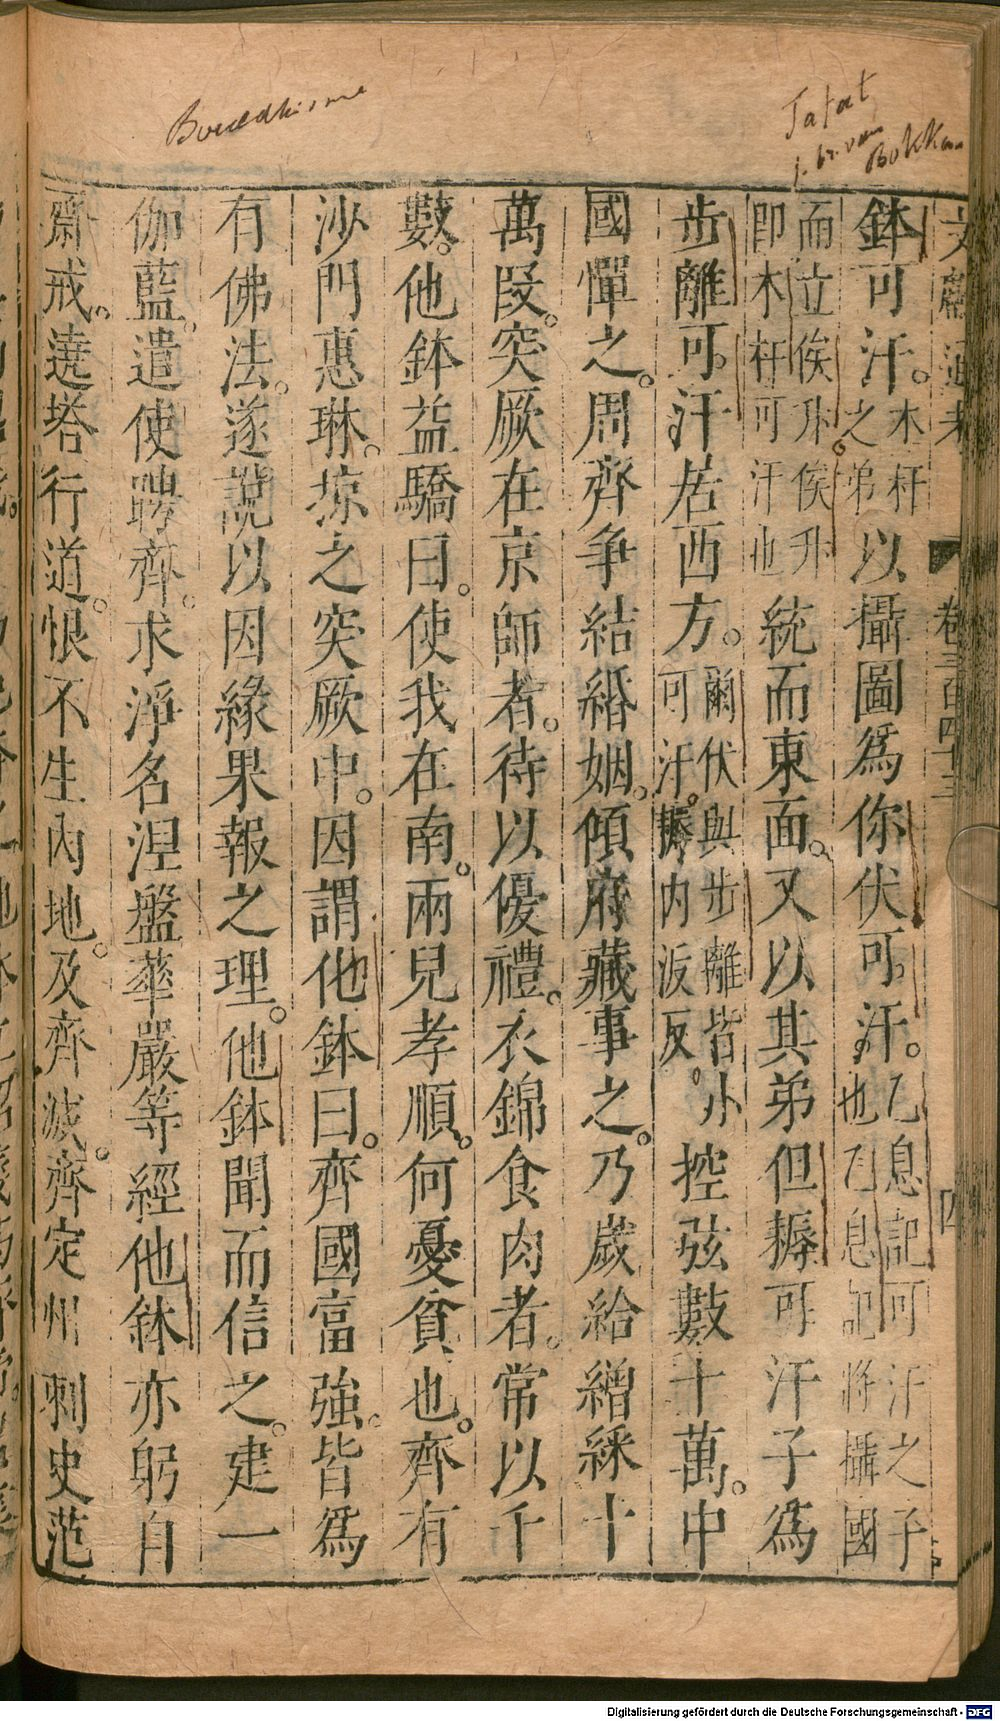 Bouddhisme
Tatat
j. br. van
Bokkan
文獻通考 卷三百四十三 四
鉢可汗。木杆之弟以攝圖爲你伏可汗。乙息記可汗之子也乙息記將攝國
而立俟斤。俟斤即木杆可汗也統而東面。又以其弟但耨可汗子爲
步離可汗居西方。爾伏與步離皆小可汗。耨內沃反。控弦數十萬。中
國憚之。周齊爭結緍姻。傾府藏事之。乃歲給繒綵十
萬段。突厥在京師者。待以優禮。衣錦食肉者。常以千
數。他鉢益驕曰。使我在南。兩兒孝順。何憂貧也。齊有
沙門惠琳。掠之突厥中。因謂他鉢曰。齊國富強。皆爲
有佛法。遂說以因緣果報之理。他鉢聞而信之。建一
伽藍。遣使聘齊。求淨名涅盤華嚴等經他鉢亦躬自
齋戒。遶塔行道。恨不生內地。及齊滅。齊定州刺史范
Digitalisierung gefördert durch die Deutsche Forschungsgemeinschaft - DFG